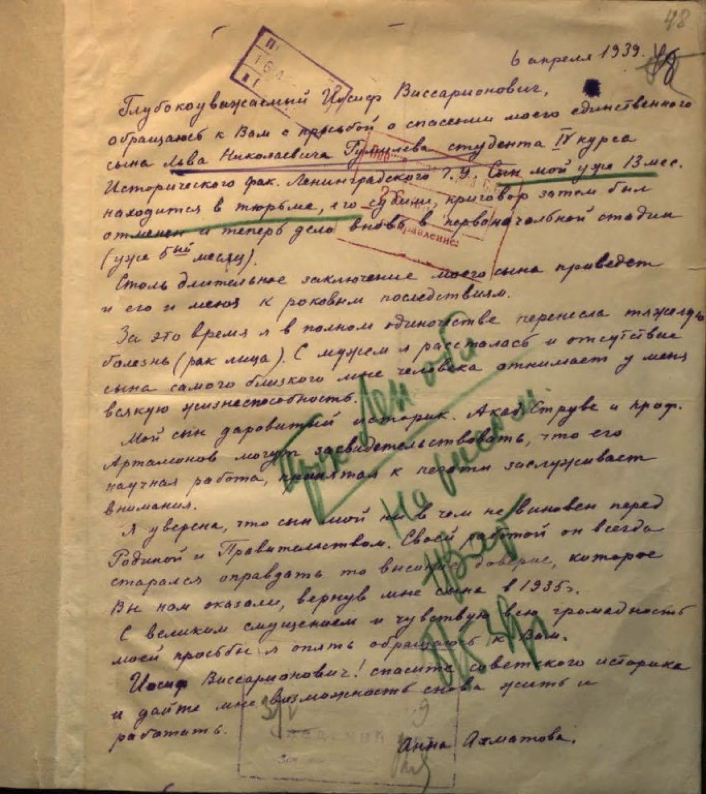 48
6 апреля 1939.
Глубокоуважаемый Иосиф Виссарионович,
обращаюсь к Вам с просьбой о спасении моего единственного
сына Льва Николаевича Гумилева студента IV курса
Исторического фак. Ленинградского Г.У. Сын мой уже 13 мес.
находится в тюрьме, его судили, приговор затем был
отменен и теперь дело вновь в первоначальной стадии
(уже 5ый месяц).
Столь длительное заключение моего сына приведет
и его и меня к роковым последствиям.
За это время я в полном одиночестве перенесла тяжелую
болезнь (рак лица). С мужем я рассталась и отсутствие
сына самого близкого мне человека отнимает у меня
всякую жизнеспособность.
Мой сын даровитый историк. Акад. Струве и проф.
Артамонов могут засвидетельствовать, что его
научная работа, принятая к печати заслуживает
внимания.
Я уверена, что сын мой ни в чем не виновен перед
Родиной и Правительством. Своей работой он всегда
старался оправдать то высокое доверие, которое
Вы нам оказали, вернув мне сына в 1935 г.
С великим смущением и чувствуя всю громадность
моей просьбы я опять обращаюсь к Вам.
Иосиф Виссарионович! спасите советского историка
и дайте мне возможность снова жить и
работать.
Анна Ахматова.